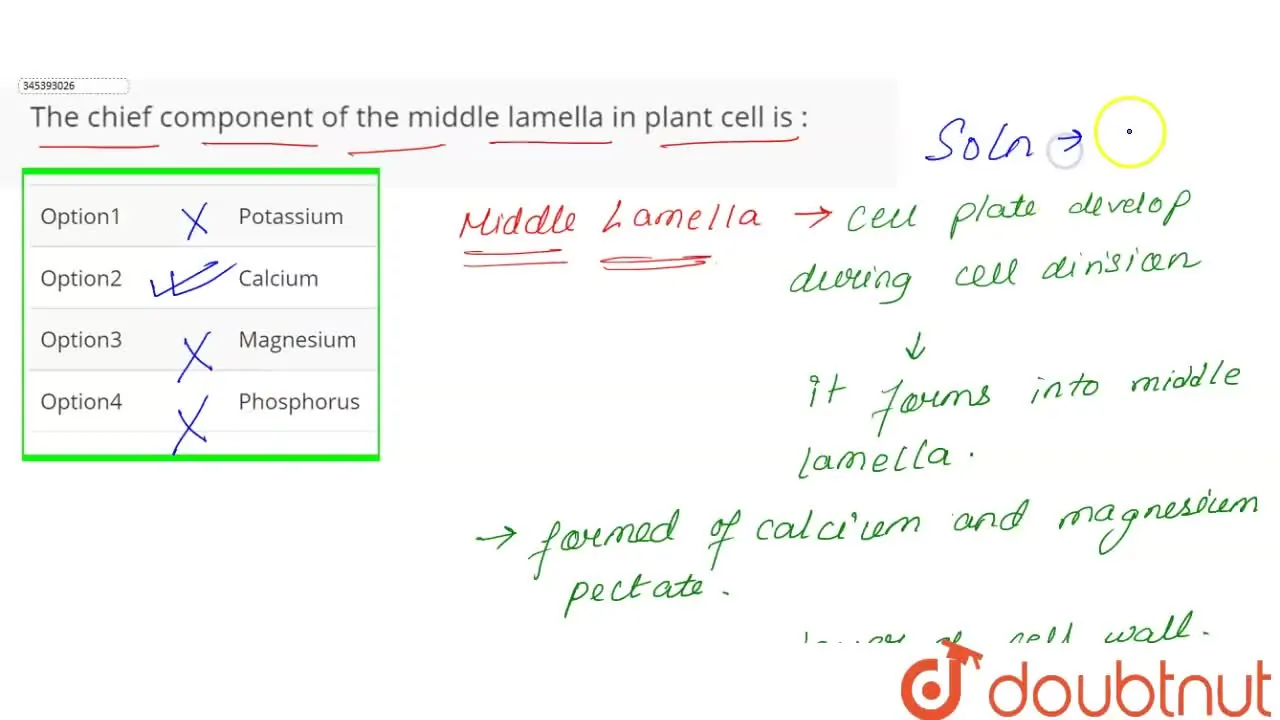 345393026
The chief component of the middle lamella in plant cell is :
Soln →
Option1 Potassium
Option2 Calcium
Option3 Magnesium
Option4 Phosphorus
Middle Lamella → Cell plate develop
during cell division
↓
it forms into middle
lamella.
→ formed of calcium and magnesium
pectate.
cell wall.
doubtnut